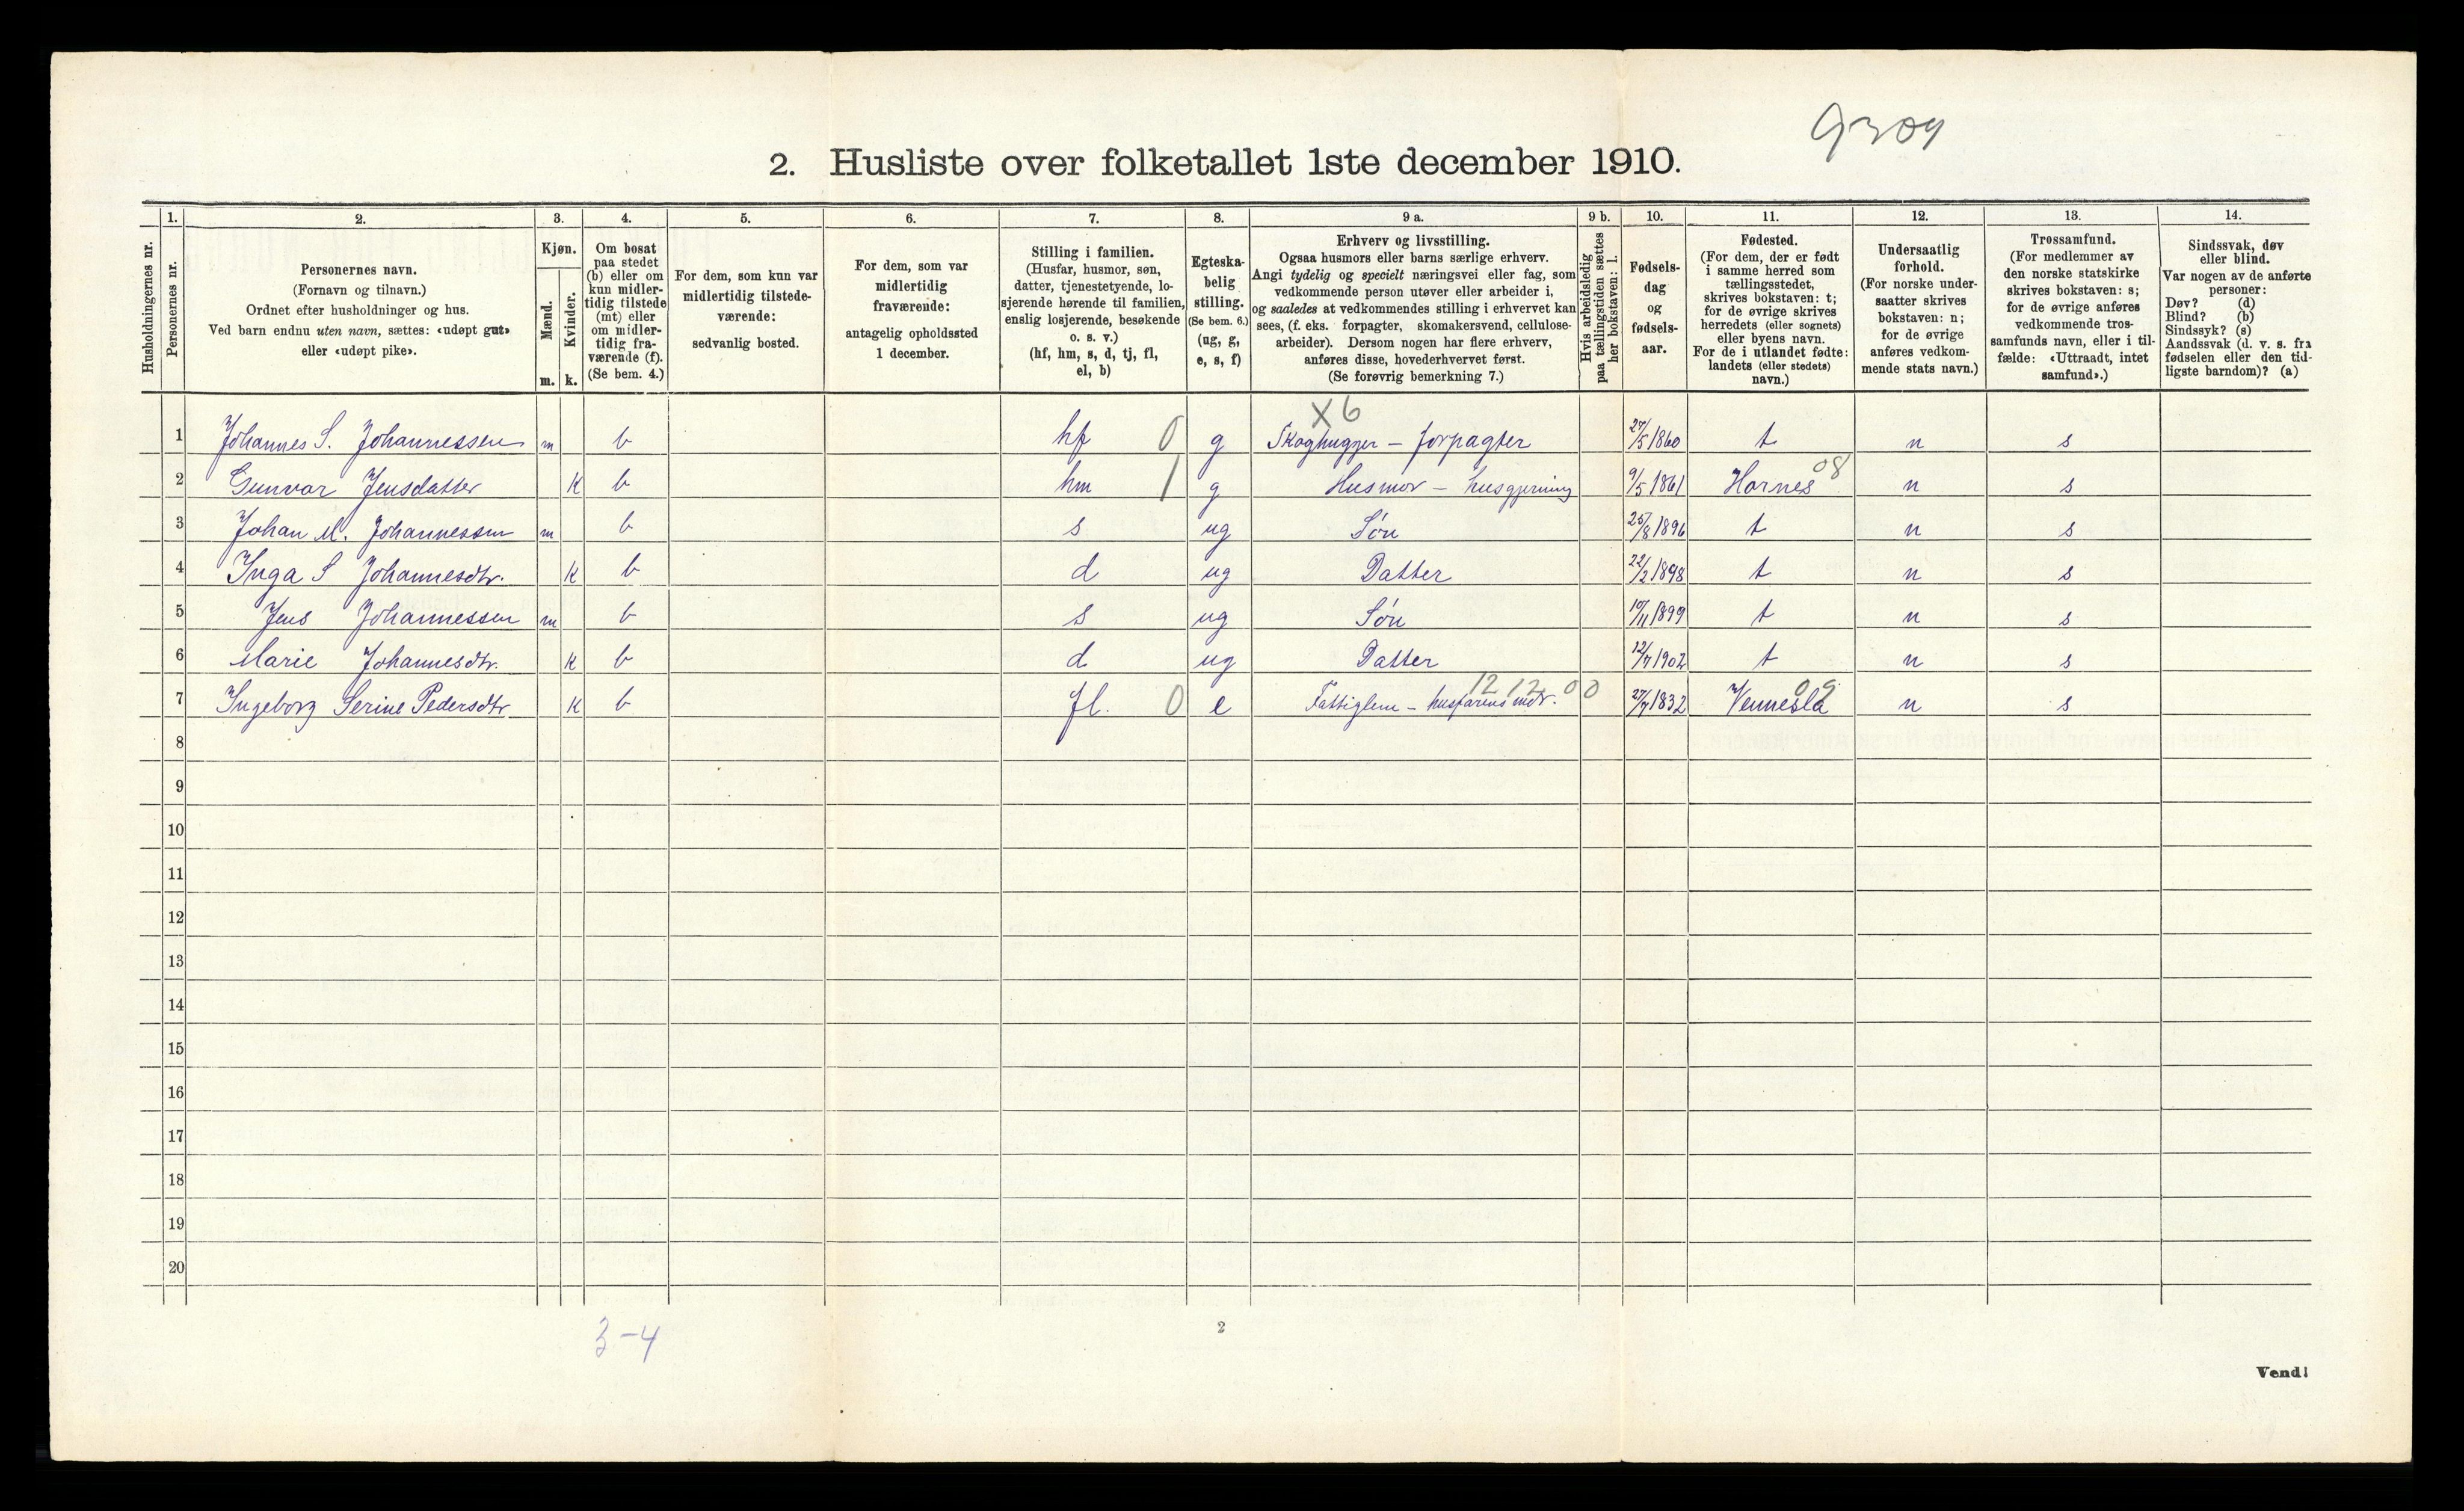 9309
2. Husliste over folketallet 1ste december 1910.
Husholdningernes nr.
1.
Personernes nr.
2.
Personernes navn.
(Fornavn og tilnavn.)
Ordnet efter husholdninger og hus.
Ved barn endnu uten navn, sættes: «udøpt gut»
eller «udøpt pike».
3.
Kjøn.
Mænd.
Kvinder.
m. k.
4.
Om bosat
paa stedet
(b) eller om
kun midler-
tidig tilstede
(mt) eller
om midler-
tidig fra-
værende (f).
(Se bem. 4.)
5.
For dem, som kun var
midlertidig tilstede-
værende:
sedvanlig bosted.
6.
For dem, som var
midlertidig
fraværende:
antagelig opholdssted
1 december.
7.
Stilling i familien.
(Husfar, husmor, søn,
datter, tjenestetyende, lo-
sjerende hørende til familien,
enslig losjerende, besøkende
o. s. v.)
(hf, hm, s, d, tj, fl,
el, b)
8.
Egteska-
belig
stilling.
(Se bem. 6.)
(ug, g,
e, s, f)
9 a.
Erhverv og livsstilling.
Ogsaa husmors eller barns særlige erhverv.
Angi tydelig og specielt næringsvei eller fag, som
vedkommende person utøver eller arbeider i,
og saaledes at vedkommendes stilling i erhvervet kan
sees, (f. eks. forpagter, skomakersvend, cellulose-
arbeider). Dersom nogen har flere erhverv,
anføres disse, hovederhvervet først.
(Se forøvrig bemerkning 7.)
9 b.
Hvis arbeidsledig
paa tællingstiden sættes
her bokstaven: l.
10.
Fødsels-
dag
og
fødsels-
aar.
11.
Fødested.
(For dem, der er født
i samme herred som
tællingsstedet,
skrives bokstaven: t;
for de øvrige skrives
herredets (eller sognets)
eller byens navn.
For de i utlandet fødte:
landets (eller stedets)
navn.)
12.
Undersaatlig
forhold.
(For norske under-
saatter skrives
bokstaven: n;
for de øvrige
anføres vedkom-
mende stats navn.)
13.
Trossamfund.
(For medlemmer av
den norske statskirke
skrives bokstaven: s;
for de øvrige anføres
vedkommende tros-
samfunds navn, eller i til-
fælde: «Uttraadt, intet
samfund».)
14.
Sindssvak, døv
eller blind.
Var nogen av de anførte
personer:
Døv? (d)
Blind? (b)
Sindssyk? (s)
Aandssvak (d. v. s. fra
fødselen eller den tid-
ligste barndom)? (a)
X 6
1 Johannes S. Johannessen m b hf 0 g Skoghugger – forpagter 27/5 1860 t n s
2 Gunvor Jensdatter k b hm 1 g Husmor – husgjerning 9/5 1861 Hornes 08 n s
3 Johan M. Johannessen m b s ug Søn 25/8 1896 t n s
4 Inga S Johannesdtr. k b d ug Datter 22/2 1898 t n s
5 Jens Johannessen m b s ug Søn 10/11 1899 t n s
6 Marie Johannesdtr. k b d ug Datter 12/7 1902 t n s
12 12 00 09
7 Ingeborg Serine Pedersdtr k b fl. 0 e Fattiglem – husfarens mor. 27/7 1832 Vennesla n s
8
9
10
11
12
13
14
15
16
17
18
19
20
3-4
2
Vend!